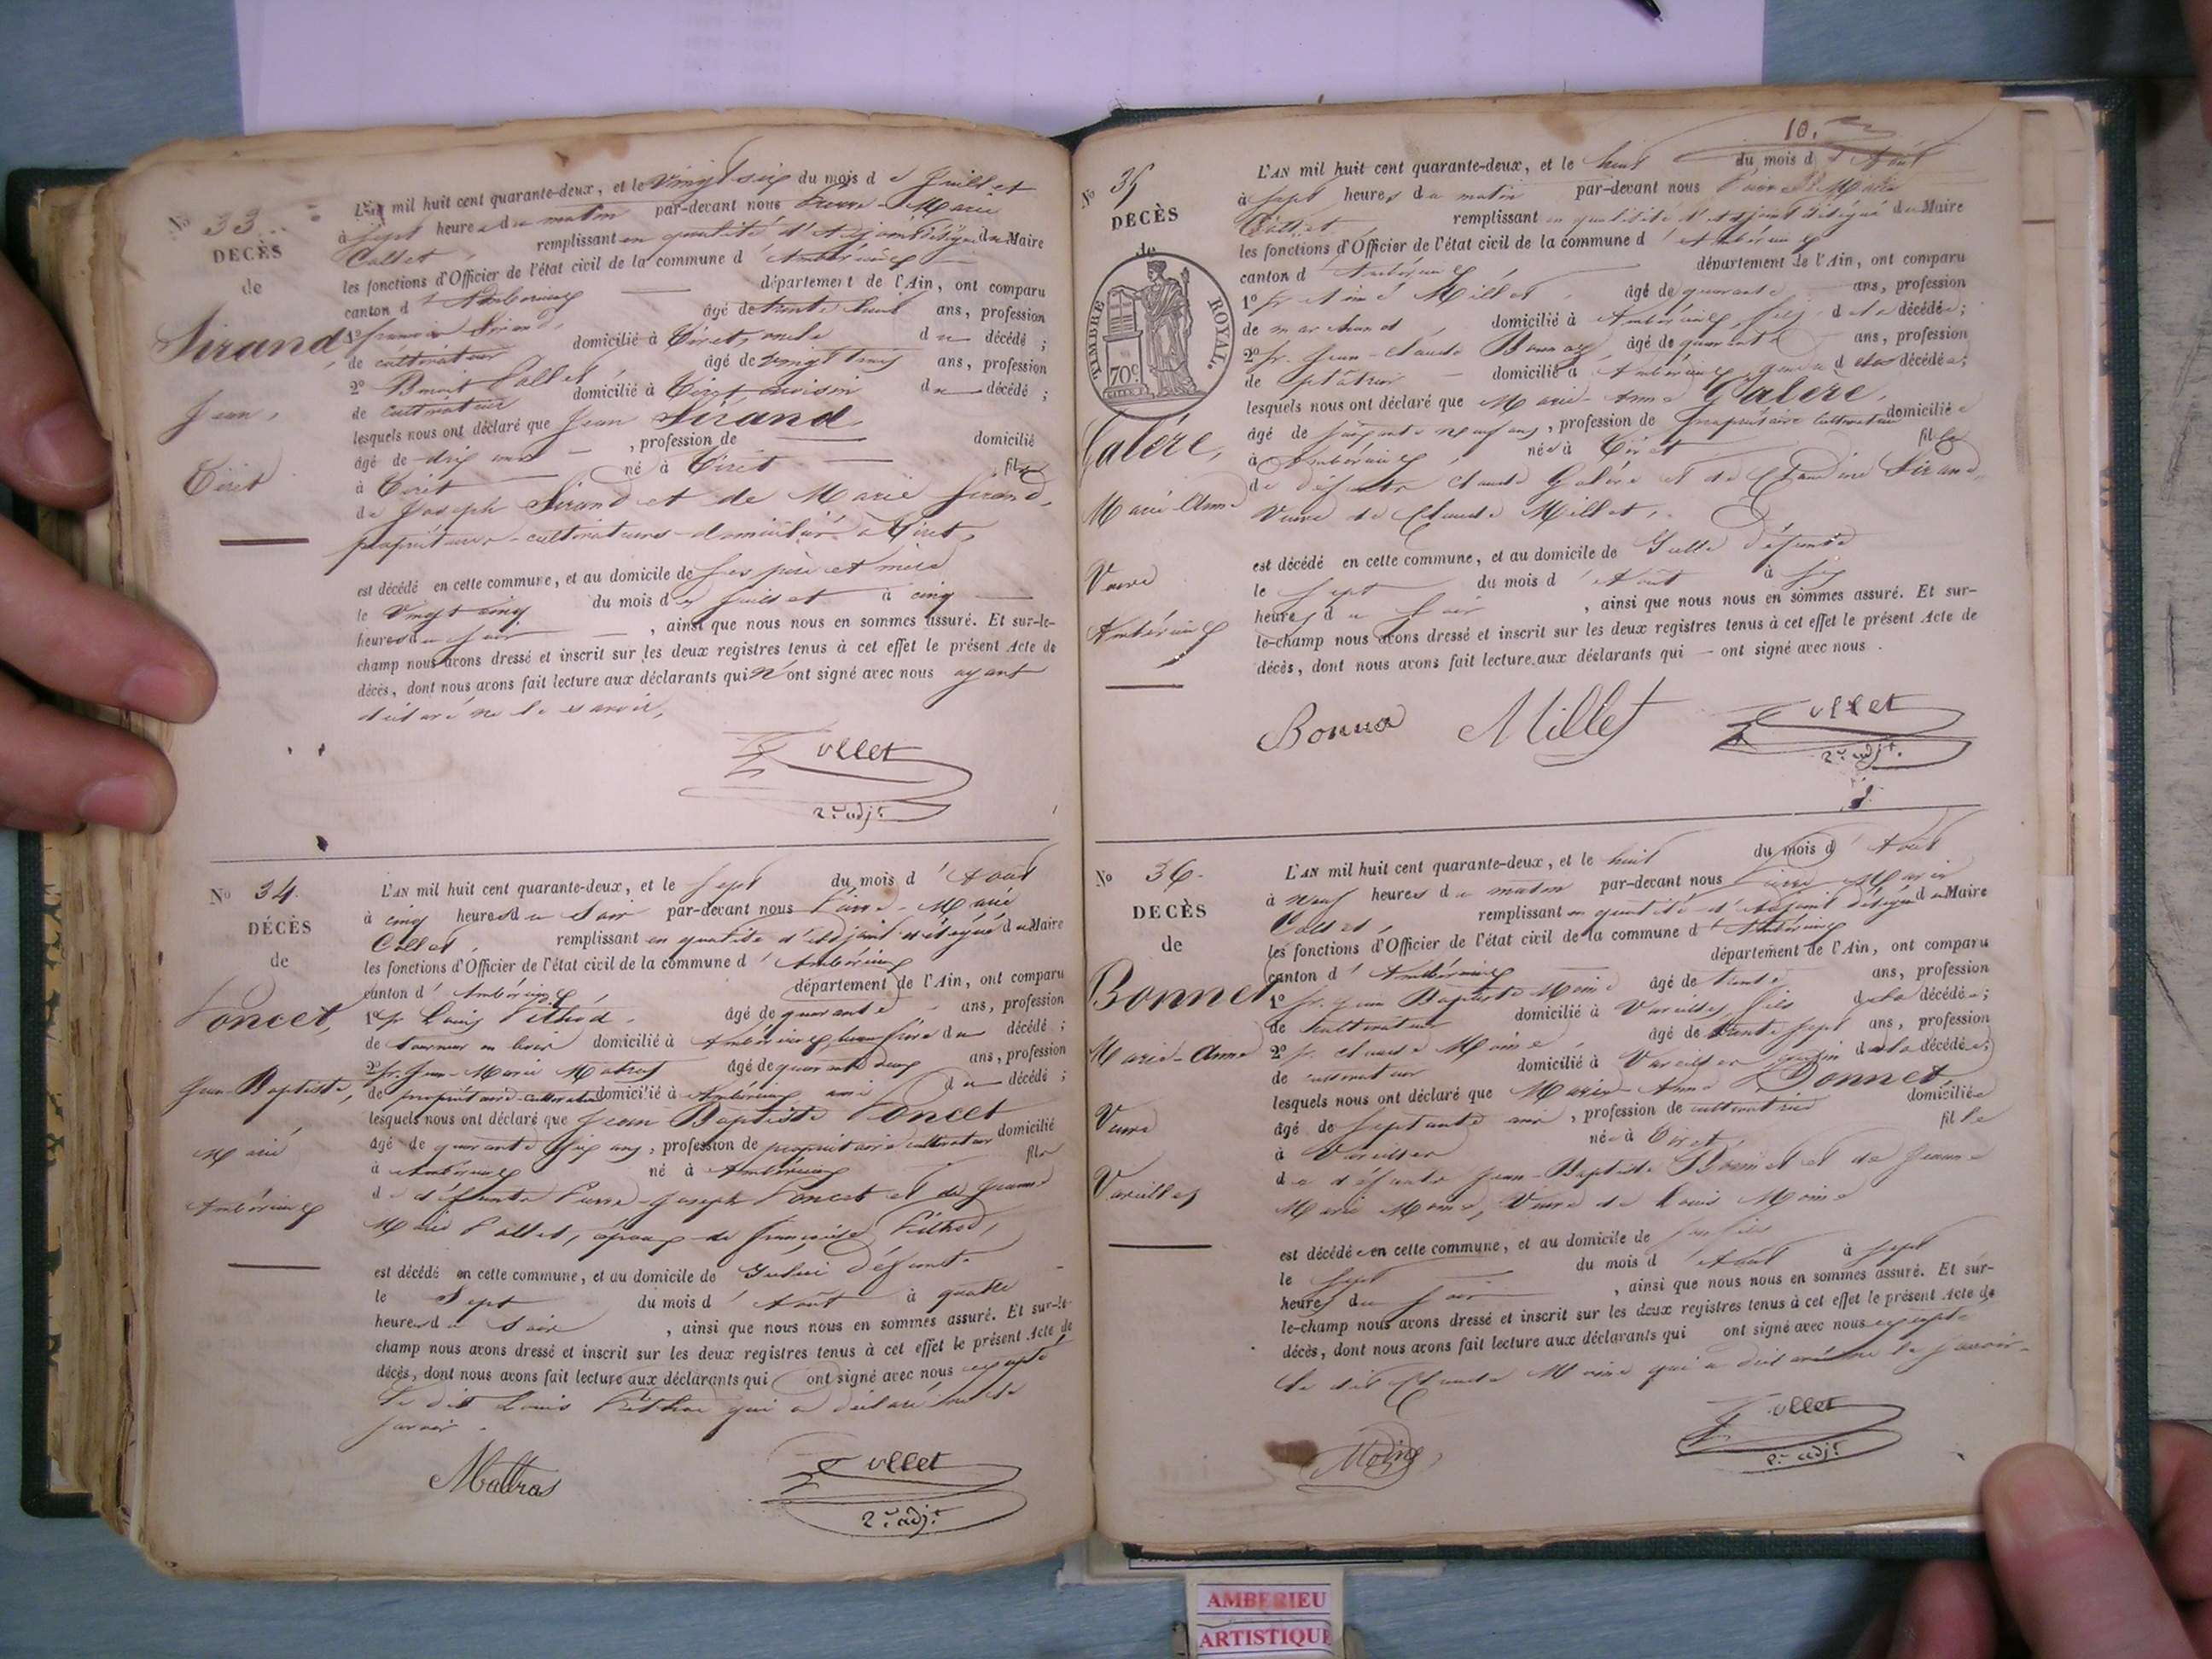 No 33
DECÈS
de
Sirand,
Jean,
Tiret
L'AN mil huit cent quarante-deux, et le vingt six du mois de Juillet
à sept heures du matin par-devant nous Pierre-Marie
Collet remplissant en qualité d'adjoint délégué du Maire
les fonctions d'Officier de l'état civil de la commune d'Ambérieux
canton d'Ambérieux département de l'Ain, ont comparu
1º françois Sirand, âgé de trente huit ans, profession
de cultivateur domicilié à Tiret, oncle du décédé ;
2º Benoit Collet âgé de vingt ans, profession
de cultivateur domicilié à Tiret voisin du décédé ;
lesquels nous ont déclaré que Jean Sirand,
âgé de dix ans, profession de domicilié
à Tiret né à Tiret fils
de Joseph Sirand et de Marie Sirand,
propriétaires-cultivateurs domiciliés à Tiret,
est décédé en cette commune, et au domicile de ses père et mère
le vingt cinq du mois de Juillet à cinq
heures du soir, ainsi que nous nous en sommes assuré. Et sur-le-
champ nous avons dressé et inscrit sur les deux registres tenus à cet effet le présent Acte de
décès, dont nous avons fait lecture aux déclarants qui n'ont signé avec nous ayant
déclaré ne le savoir,
Collet
2e adjt
No 34.
DÉCÈS
de
Poncet,
Jean-Baptiste,
Marié
Ambérieux
L'AN mil huit cent quarante-deux, et le sept du mois d'Août
à cinq heures du soir par-devant nous Pierre-Marie
Collet, remplissant en qualité d'adjoint délégué du Maire
les fonctions d'Officier de l'état civil de la commune d'Ambérieux
canton d'Ambérieux, département de l'Ain, ont comparu
1º sr Louis Pithod, âgé de quarante ans, profession
de tourneur en bois domicilié à Ambérieux, beau frère du décédé ;
2º sr. Jean-Marie Matras âgé de quarante deux ans, profession
de propriétaire-cultivateur domicilié à Ambérieux ami du décédé ;
lesquels nous ont déclaré que Jean Baptiste Poncet
âgé de quarante six ans, profession de propriétaire cultivateur domicilié
à Ambérieux né à Ambérieux fils
de défunts Pierre-Joseph Poncet et de Jeanne
Marie Collet, époux de françoise Pithod,
est décédé en cette commune, et au domicile de défunt
le Sept du mois d'Août à quatre
heures du soir, ainsi que nous nous en sommes assuré. Et sur-le-
champ nous avons dressé et inscrit sur les deux registres tenus à cet effet le présent Acte de
décès, dont nous avons fait lecture aux déclarants qui ont signé avec nous excepté
le dit Louis Pithod qui a déclaré ne le
savoir.
Mattras
Collet
2e adjt
10.
No 35
DÉCÈS
de
TIMBRE ROYAL.
70c
Galère,
Marie Anne
Veuve
Ambérieux
L'AN mil huit cent quarante-deux, et le huit du mois d'Août
à sept heures du matin par-devant nous Pierre Marie
Collet, remplissant en qualité d'adjoint délégué du Maire
les fonctions d'Officier de l'état civil de la commune d'Ambérieux
canton d'Ambérieux, département de l'Ain, ont comparu
1º sr Aimé Millet, âgé de quarante ans, profession
de marchand, domicilié à Ambérieux, fils de la décédée ;
2º sr. Jean-Claude Bonnaz, âgé de quarante ans, profession
de plâtrier domicilié à Ambérieux, gendre de la décédée ;
lesquels nous ont déclaré que Marie-Anne Galère,
âgé de soixante neuf ans, profession de propriétaire cultivateur domiciliée
à Ambérieux, née à Tiret fille
de défunts Claude Galère et de Claudine Sirand,
Veuve de Claude Millet,
est décédé en cette commune, et au domicile de défunte
le sept du mois d'Août à six
heures du soir, ainsi que nous nous en sommes assuré. Et sur-
le-champ nous avons dressé et inscrit sur les deux registres tenus à cet effet le présent Acte de
décès, dont nous avons fait lecture aux déclarants qui ont signé avec nous.
Bonnaz Millet Collet
2e adjt.
No 36.
DECÈS
de
Bonnet
Marie-Anne
Veuve
Vareilles
L'AN mil huit cent quarante-deux, et le huit du mois d'Août
à neuf heures du matin par-devant nous Pierre Marie
Collet, remplissant en qualité d'adjoint délégué du Maire
les fonctions d'Officier de l'état civil de la commune d'Ambérieux
canton d'Ambérieux département de l'Ain, ont comparu
1º sr. Jean Baptiste Moine âgé de trente ans, profession
de cultivateur domicilié à Vareilles, fils de la décédée ;
2º sr. Claude Moine, âgé de trente sept ans, profession
de cultivateur domicilié à Vareilles cousin de la décédée ;
lesquels nous ont déclaré que Marie-Anne Bonnet
âgé de septante ans, profession de cultivatrice domiciliée
à Vareilles née à Tiret fille
de défunts Jean-Baptiste Bonnet et de Jeanne
Marie Moine, Veuve de Louis Moine
est décédée en cette commune, et au domicile de son fils
le sept du mois d'Août à sept
heures du soir, ainsi que nous nous en sommes assuré. Et sur-
le-champ nous avons dressé et inscrit sur les deux registres tenus à cet effet le présent Acte de
décès, dont nous avons fait lecture aux déclarants qui ont signé avec nous excepté
le dit Claude Moine qui a déclaré ne le savoir.
Moine
Collet
2e adjt
AMBERIEU
ARTISTIQUE